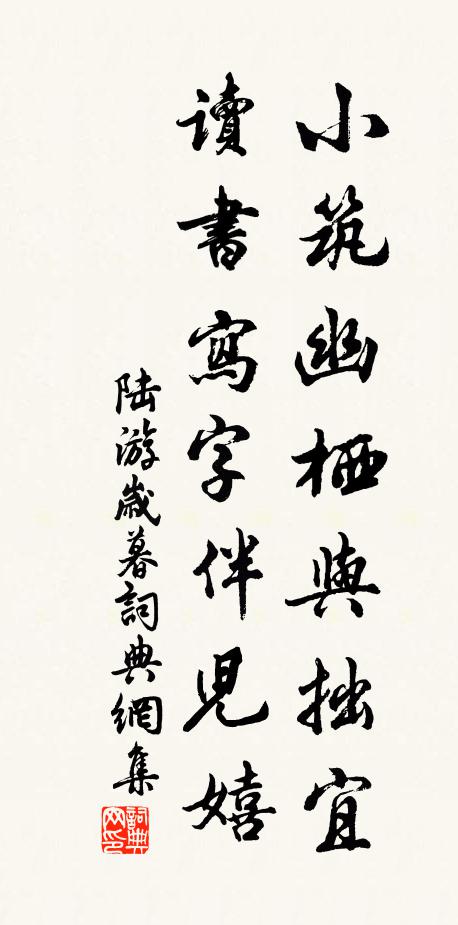 小筑幽栖與拙宜
讀書寫字伴兒嬉
陸游歲暮詞典網集
詞典网印